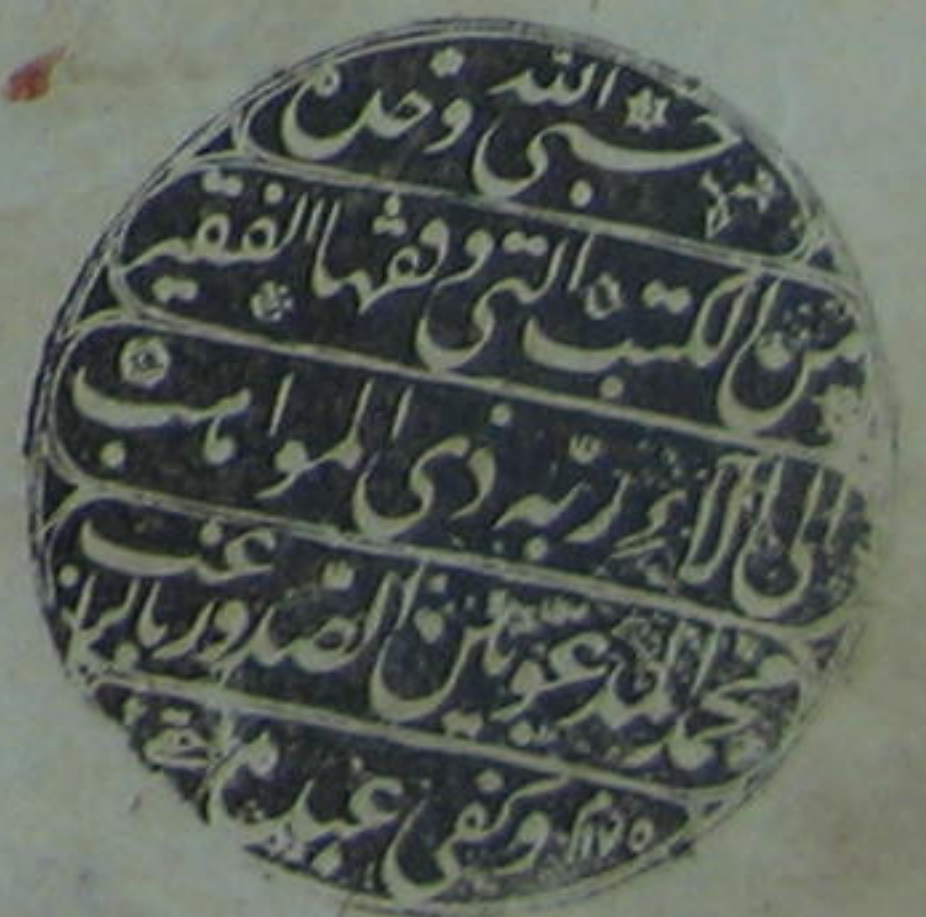 حسبي الله وحده
من الكتب التي وقفها الفقير
الى آلاء ربّه ذي المواهب
محمد المدعو بين الصّدور بالراغب
وكفى عبده ١١٧٥